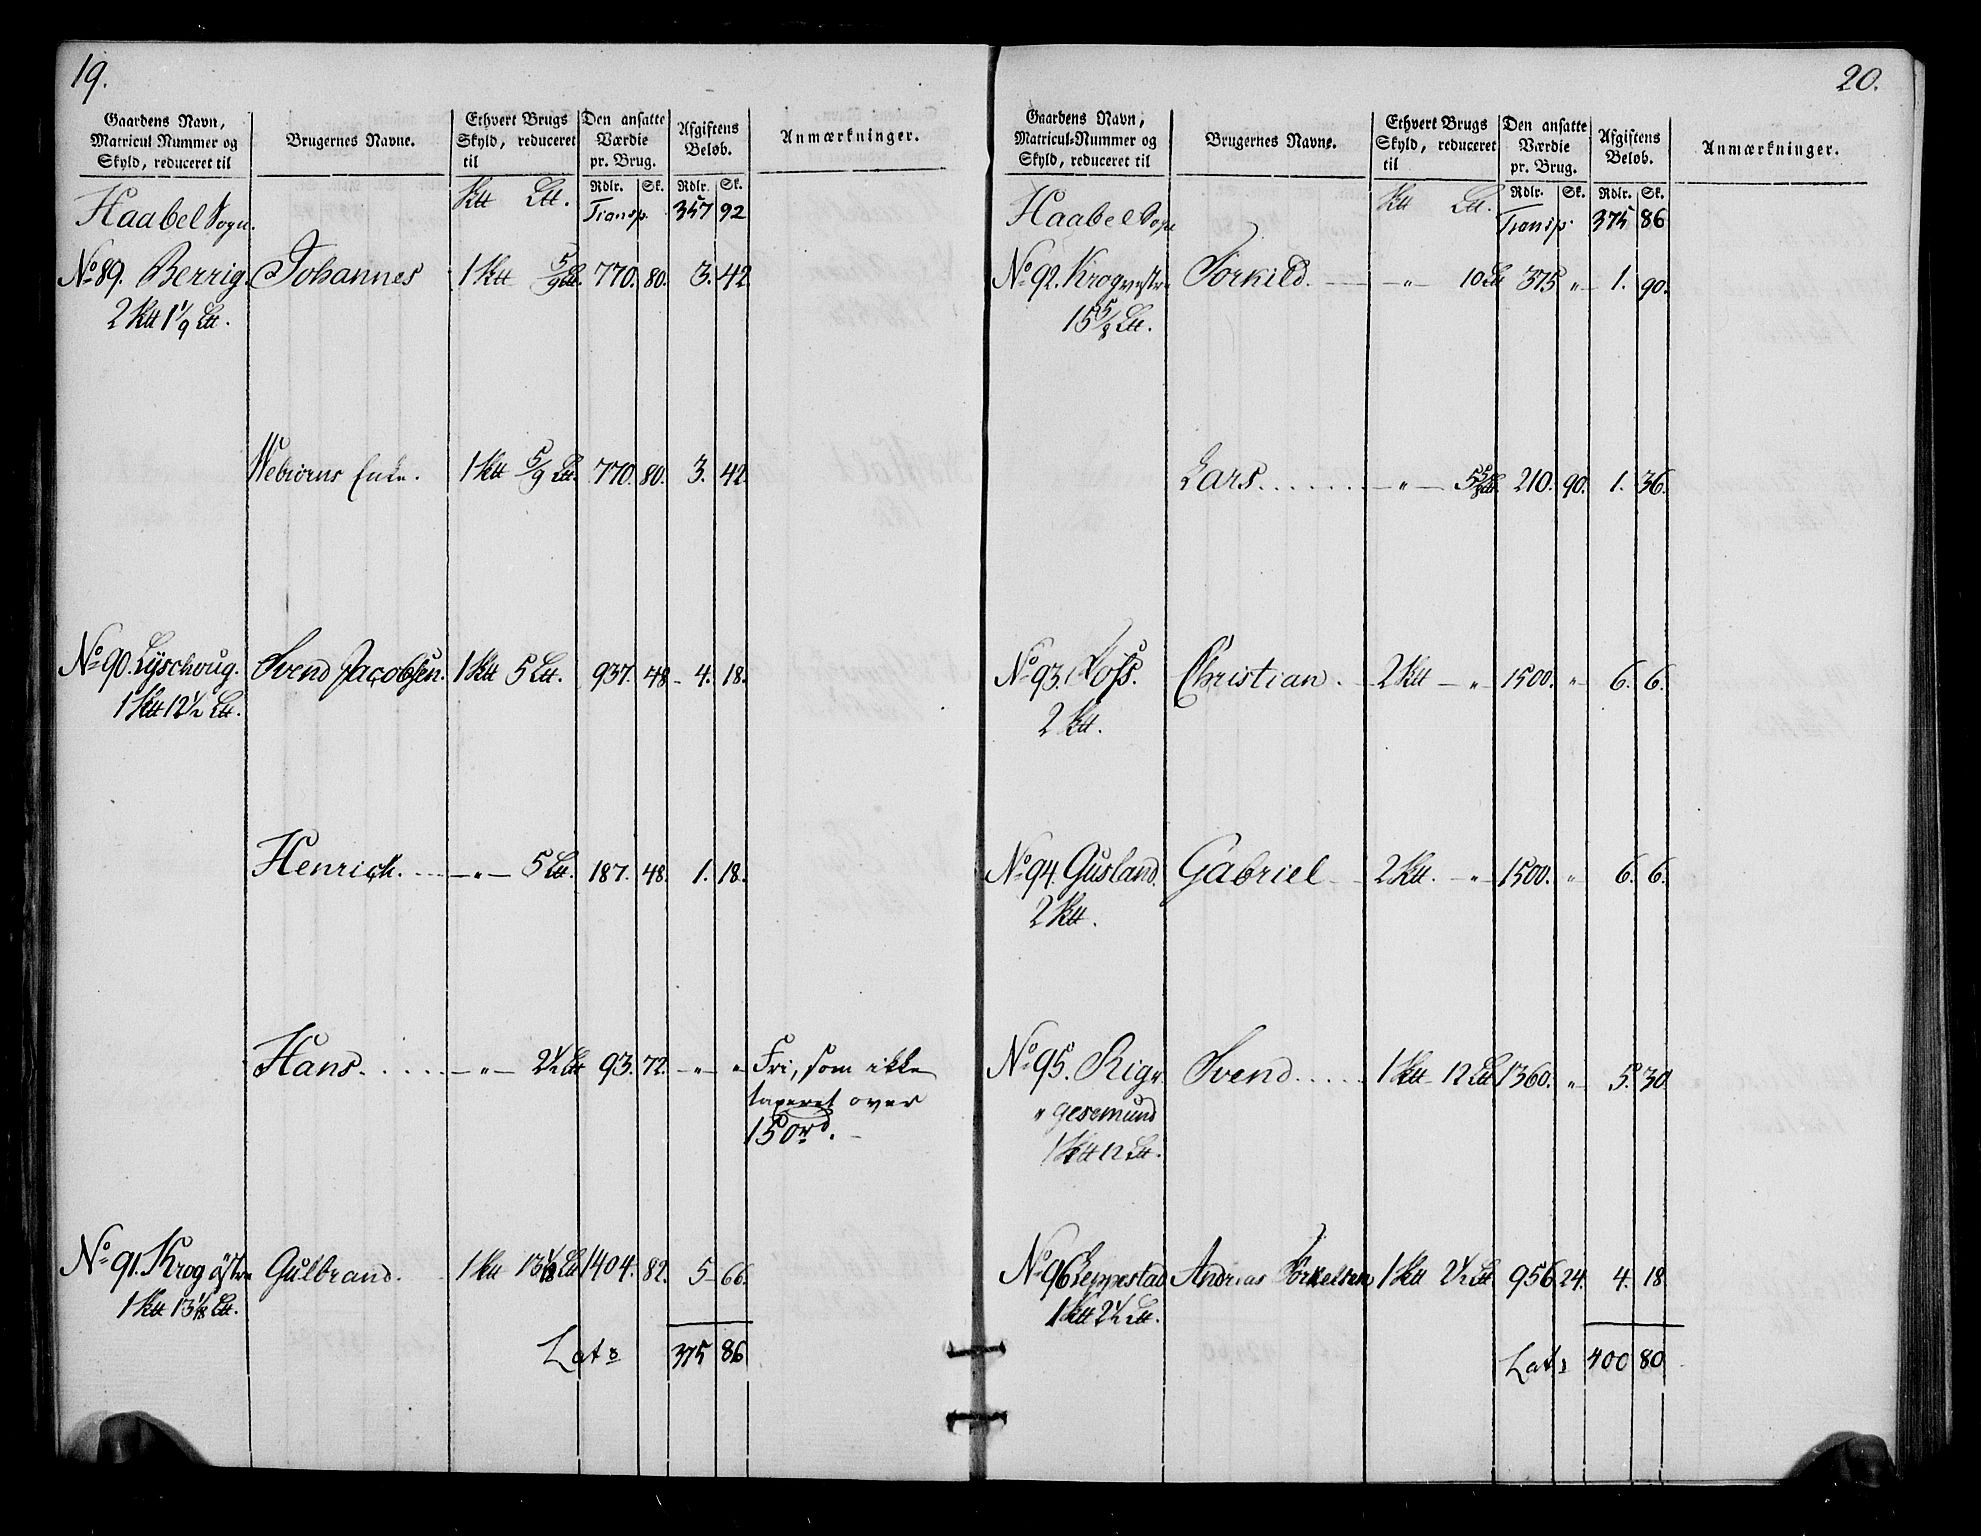 19.
Gaardens Navn, Matricul Nummer og Skyld, reduceret til | Brugernes Navne. | Ethvert Brugs Skyld, reduceret til | Den ansatte Værdie pr. Brug. | Afgiftens Beløb. | Anmærkninger.
Rdlr. Sk. Rdlr. Sk.
Haabel Sogn. Htt Ltt. Transp. 357 92
No 89. Berrig. Johannes 1 Htt 5/9 Ltt. 770. 80. 3. 42
2 Htt 1 1/9 Ltt.
Webiörns Enke. 1 Htt 5/9 Ltt. 770. 80. 3. 42
No 90. Lyschoug. Svend Jacobsen. 1 Htt 5 Ltt. 937. 48 4. 18.
1 Htt 12 1/2 Ltt.
Henrich. — „ — 5 Ltt. 187. 48. 1. 18.
Hans. — „ — 2 1/2 Ltt 93. 72. — „ „
Fri, som ikke
taxeret over
150 rd.
No 91. Krog östre Gulbrand. 1 Htt 13 1/18 Ltt 1404. 82. 5 66.
1 Htt 13 1/18 Ltt.
Lats 375 86
20.
Gaardens Navn, Matricul-Nummer og Skyld, reduceret til | Brugernes Navne. | Ethvert Brugs Skyld, reduceret til | Den ansatte Værdie pr. Brug. | Afgiftens Beløb. | Anmærkninger.
Rdlr. Sk. Rdlr. Sk.
Haabel Sogn Htt Ltt. Transp 375 86
No 92. Krog vestre Torkild. — „ 10 Ltt 375 „ 1. 90.
15 5/8 Ltt.
Lars. — „ — 5 5/8 Ltt. 210. 90. 1. 36.
No 93. Foss. Christian. 2 Htt — „ — 1500. „ 6. 6.
2 Htt.
No 94. Gusland. Gabriel 2 Htt. — „ — 1500. „ 6. 6.
2 Htt.
No 95. Rig„ Svend. 1 Htt 12 Ltt 1360. „ 5. 30
„ gesemund
1 Htt 12 Ltt.
No 96 Leppestad Andreas Torkelsen 1 Htt 2 1/2 Ltt 956 24. 4. 18
1 Htt 2 1/2 Ltt.
Lats 400 80